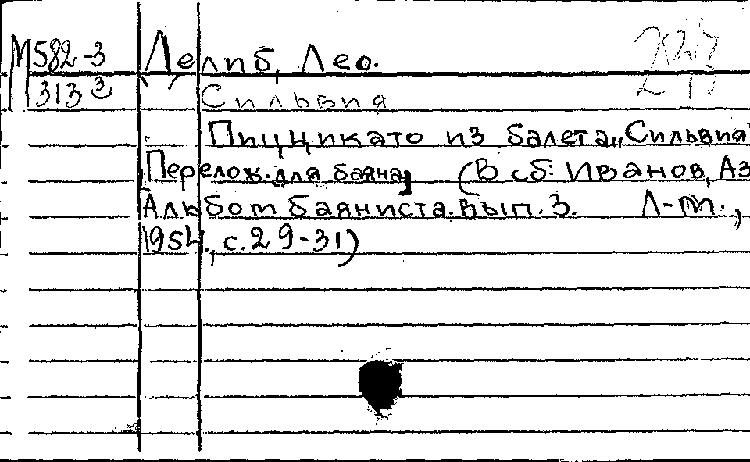 М582-3 Делиб, Лео.
313 3 Сильвия
Пиццикато из балета „Сильвия"
[Перелож. для баяна] (В сб: Иванов, Аз
Альбом баяниста. Вып. 3. Л-М.,
1954., с. 29-31)